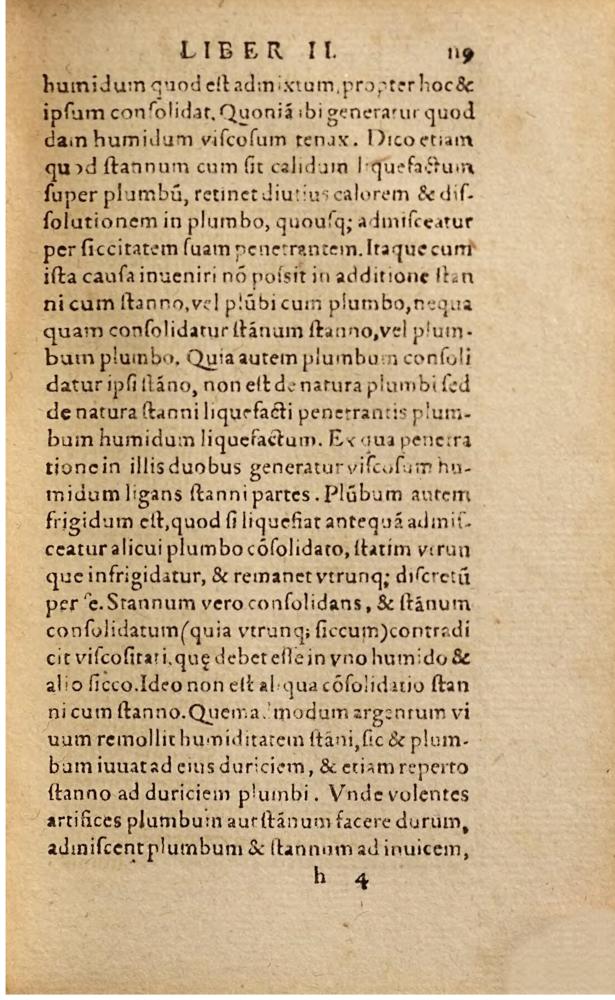 LIBER II. 119
humidum quod eſt admixtum, propter hoc &
ipſum conſolidat. Quoniã ibi generatur quod
dam humidum viſcoſum tenax. Dico etiam
quod ſtannum cum ſit calidum liquefactum
ſuper plumbũ, retinet diutius calorem & diſ-
ſolutionem in plumbo, quouſq; admiſceatur
per ſiccitatem ſuam penetrantem. Itaque cum
iſta cauſa inueniri nõ poſsit in additione ſtan
ni cum ſtanno, vel plũbi cum plumbo, nequa
quam conſolidatur ſtãnum ſtanno, vel plum-
bum plumbo. Quia autem plumbum conſoli
datur ipſi ſtãno, non eſt de natura plumbi ſed
de natura ſtanni liquefacti penetrantis plum-
bum humidum liquefactum. Ex qua penetra
tione in illis duobus generatur viſcoſum hu-
midum ligans ſtanni partes. Plũbum autem
frigidum eſt, quod ſi liquefiat antequã admiſ-
ceatur alicui plumbo cõſolidato, ſtatim vtrun
que infrigidatur, & remanet vtrunq; diſcretũ
per ſe. Stannum vero conſolidans, & ſtãnum
conſolidatum (quia vtrunq; ſiccum) contradi
cit viſcoſitati, quę debet eſſe in vno humido &
alio ſicco. Ideo non eſt aliqua cõſolidatio ſtan
ni cum ſtanno. Quemadmodum argentum vi
uum remollit humiditatem ſtãni, ſic & plum-
bum iuuat ad eius duriciem, & etiam reperto
ſtanno ad duriciem plumbi. Vnde volentes
artifices plumbum aut ſtãnum facere durum,
admiſcent plumbum & ſtannum ad inuicem,
h 4